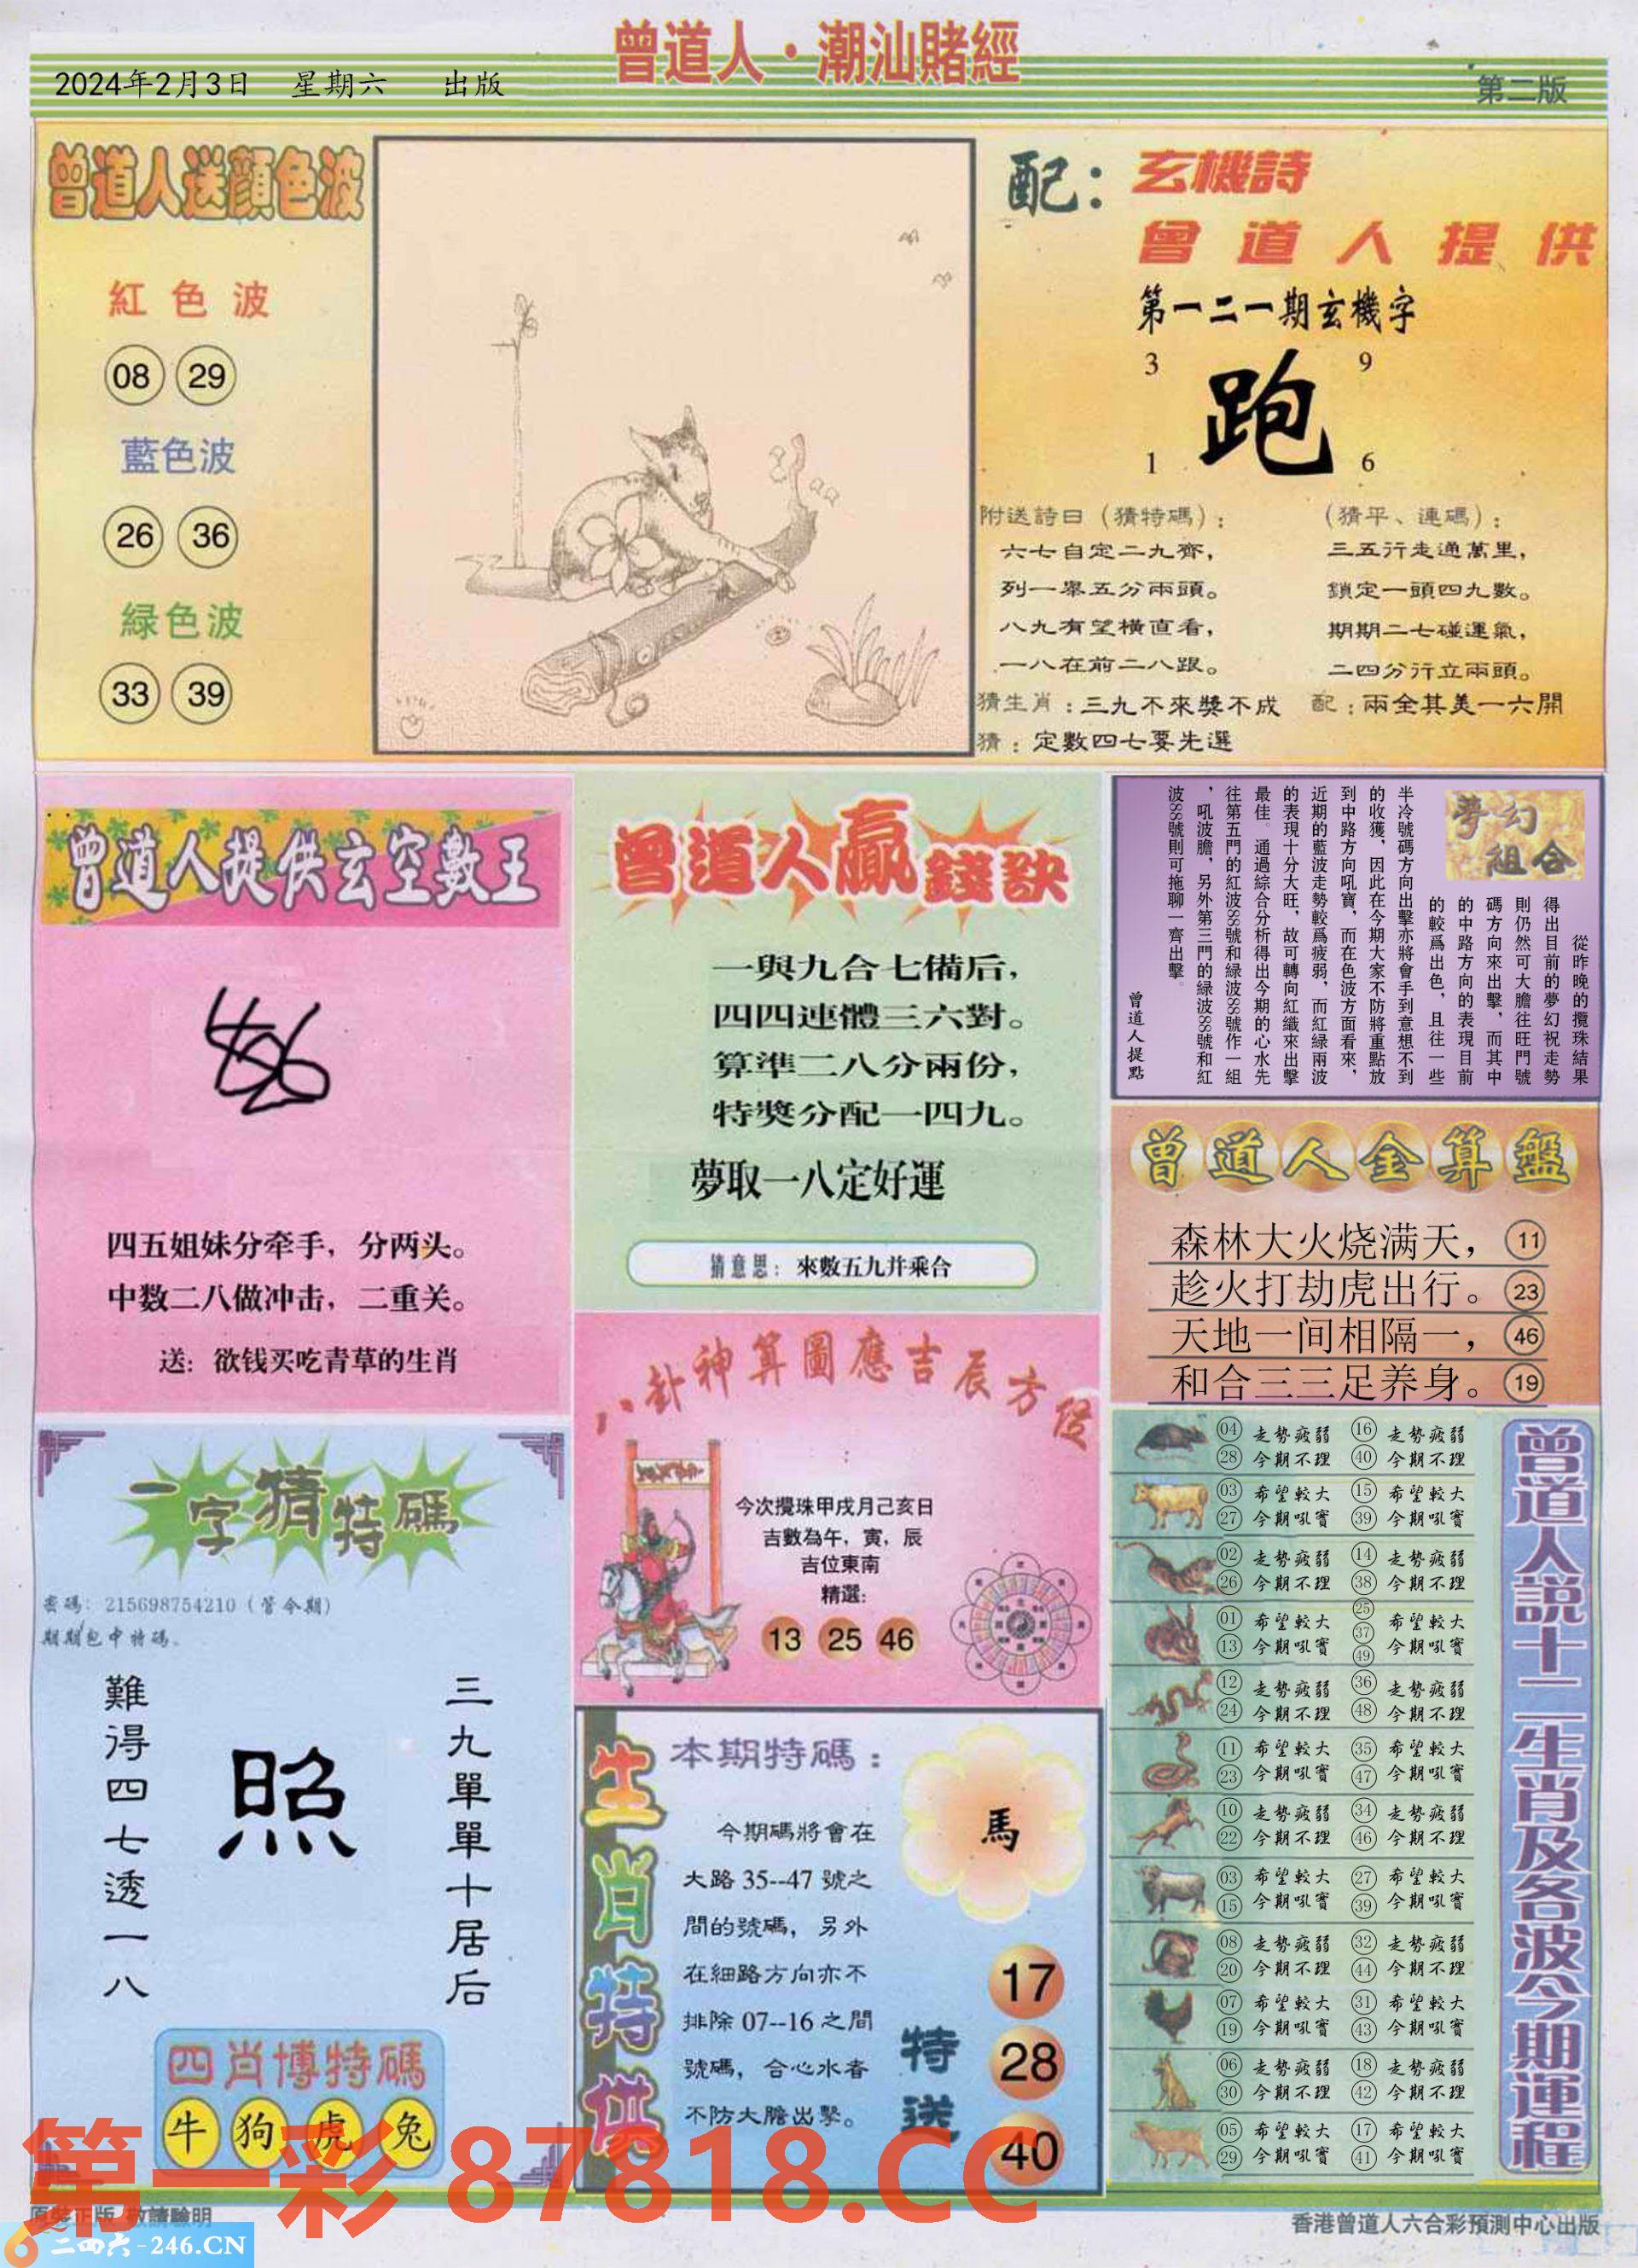 曾道人·潮汕賭經
2024年2月3日 星期六 出版
第二版
曾道人送顔色波
紅色波
08 29
藍色波
26 36
緑色波
33 39
配：玄機詩
曾道人提供
第一二一期玄機字
3 9
跑
1 6
附送詩曰（猜特碼）：
六七自定二九齊，
列一舉五分兩頭。
八九有望橫直看，
一八在前二八跟。
（猜平、連碼）：
三五行走通萬里，
鎖定一頭四九數。
期期二七碰運氣，
二四分行立兩頭。
猜生肖：三九不來獎不成 配：兩全其美一六開
猜：定數四七要先選
曾道人提供玄空數王
四五姐妹分牵手，分两头。
中数二八做冲击，二重关。
送：欲钱买吃青草的生肖
曾道人贏錢訣
一與九合七備后，
四四連體三六對。
算準二八分兩份，
特獎分配一四九。
夢取一八定好運
猜意思：來數五九并乘合
夢幻組合
從昨晚的攪珠結果
得出目前的夢幻祝走勢
則仍然可大膽往旺門號
碼方向來出擊，而其中
的中路方向的表現目前
的較爲出色，且往一些
半冷號碼方向出擊亦將會手到意想不到
的收獲，因此在今期大家不防將重點放
到中路方向吼寶，而在色波方面看來，
近期的藍波走勢較爲疲弱，而紅緑兩波
的表現十分大旺，故可轉向紅織來出擊
最佳。通過綜合分析得出今期的心水先
往第五門的紅波88號和緑波88號作一組
，吼波膽，另外第三門的緑波88號和紅
波88號則可拖聊一齊出擊。
曾道人提點
曾道人金算盤
森林大火烧满天，11
趁火打劫虎出行。23
天地一间相隔一，46
和合三三足养身。19
八卦神算圖應吉辰方位
今次攪珠甲戌月己亥日
吉數為午，寅，辰
吉位東南
精選：
13 25 46
一字猜特碼
密碼：215698754210（管今期）
期期包中特碼。
三九單單十居后
照
難得四七透一八
四肖博特碼
牛 狗 虎 兔
生肖特供
本期特碼：
今期碼將會在
大路35--47號之
間的號碼，另外
在細路方向亦不
排除07--16之間
號碼，合心水者
不防大膽出擊。
馬
特送
17
28
40
曾道人說十二生肖及各波今期運程
04 走勢疲弱 16 走勢疲弱
28 今期不理 40 今期不理
03 希望較大 15 希望較大
27 今期吼寶 39 今期吼寶
02 走勢疲弱 14 走勢疲弱
26 今期不理 38 今期不理
01 希望較大 25 37 希望較大
13 今期吼寶 49 今期吼寶
12 走勢疲弱 36 走勢疲弱
24 今期不理 48 今期不理
11 希望較大 35 希望較大
23 今期吼寶 47 今期吼寶
10 走勢疲弱 34 走勢疲弱
22 今期不理 46 今期不理
03 希望較大 27 希望較大
15 今期吼寶 39 今期吼寶
08 走勢疲弱 32 走勢疲弱
20 今期不理 44 今期不理
07 希望較大 31 希望較大
19 今期吼寶 43 今期吼寶
06 走勢疲弱 18 走勢疲弱
30 今期不理 42 今期不理
05 希望較大 17 希望較大
29 今期吼寶 41 今期吼寶
第一彩 87818.CC
原裝正版 敬請驗明
二四六-246.CN
香港曾道人六合彩預測中心出版